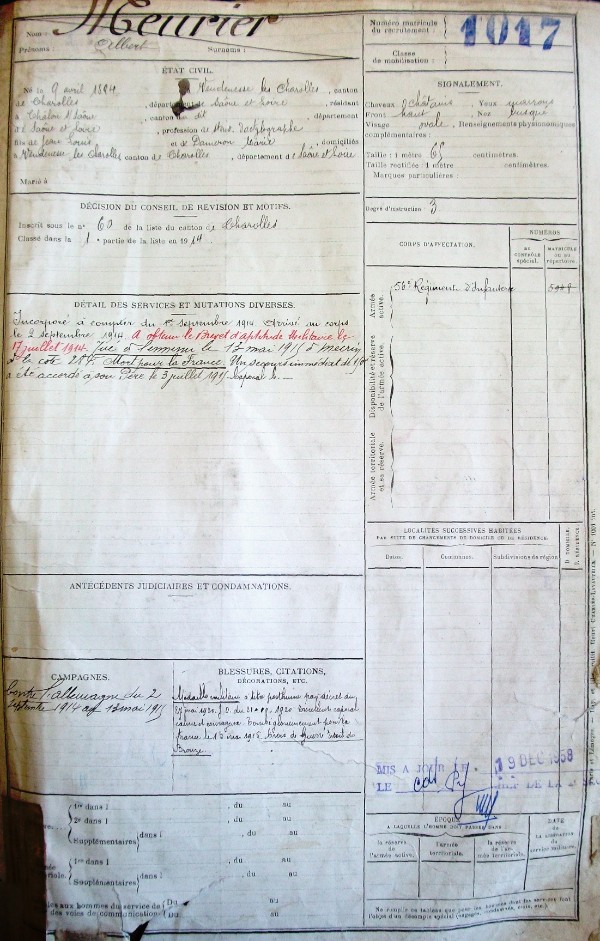 Nom : Meurier
Prénoms : Albert Surnoms :
Numéro matricule du recrutement : 1017
Classe de mobilisation :
ÉTAT CIVIL.
Né le 9 avril 1894, à Vendenesse les Charolles, canton
de Charolles, département de Saône et Loire, résidant
à Chalon s/Saône, canton du dit, département
de Saône et Loire, profession de Dactylographe
fils de Jean Louis et de Dameron Marie, domiciliés
à Vendenesse les Charolles canton de Charolles, département de Saône et Loire
Marié à
SIGNALEMENT.
Cheveux châtains Yeux marrons
Front haut Nez busqué
Visage ovale Renseignements physionomiques
complémentaires :
Taille : 1 mètre 65 centimètres.
Taille rectifiée : 1 mètre centimètres.
Marques particulières :
Degré d'instruction : 3
DÉCISION DU CONSEIL DE RÉVISION ET MOTIFS.
Inscrit sous le n° 60 de la liste du canton de Charolles
Classé dans la 1e partie de la liste en 1914
CORPS D'AFFECTATION.
NUMÉROS
DU CONTRÔLE spécial.
MATRICULE OU AU répertoire.
Armée active.
56e Régiment d'Infanterie
Disponibilité et réserve de l'armée active.
Armée territoriale et sa réserve.
DÉTAIL DES SERVICES ET MUTATIONS DIVERSES.
Incorporé à compter du 1er septembre 1914. Arrivé au corps
le 2 septembre 1914. A obtenu le Brevet d'aptitude Militaire le
17 juillet 1914. Tué à l'ennemi le 13 mai 1915 à
à la cote Mort pour la France. Un secours immédiat de 150
a été accordé à son Père le 3 juillet 1915. Caporal
ANTÉCÉDENTS JUDICIAIRES ET CONDAMNATIONS.
LOCALITÉS SUCCESSIVES HABITÉES
PAR SUITE DE CHANGEMENTS DE DOMICILE OU DE RÉSIDENCE.
Dates. Communes. Subdivisions de région D. DOMICILE. R. RÉSIDENCE
CAMPAGNES.
Contre l'allemagne du 2
septembre 1914 au 13 mai 1915
BLESSURES, CITATIONS,
DÉCORATIONS, ETC.
Médaille militaire à titre posthume par décret du
1920. J.O. du 1920 Excellent caporal
calme et courageux. Tombé glorieusement pour la
france le 13 mai 1915. Croix de Guerre étoile de
Bronze.
MIS A JOUR LE 19 DEC 1958
LE CHEF DE LA
1re dans l , du au
2e dans l , du au
Supplémentaires dans l , du au
1re dans l , du au
Supplémentaires dans l , du au
aux hommes du service de Du au
des voies de communication. Du au
ÉPOQUE
A LAQUELLE L'HOMME DOIT PASSER DANS
la réserve de l'armée active.
l'armée territoriale.
la réserve de l'armée territoriale.
DATE DE LA LIBÉRATION du service militaire.
Ne remplir ce tableau que pour les hommes dont les services font
l'objet d'un décompte spécial